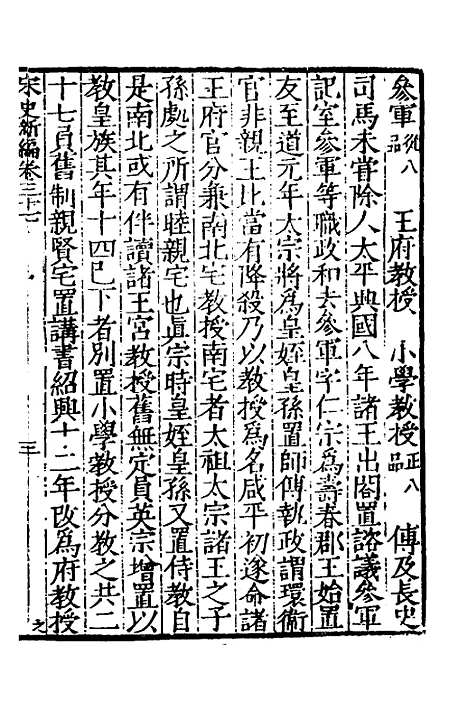 參軍從八品 王府教授 小學教授正八品 傅及長史
司馬未嘗除人太平興國八年諸王出閤置諮議參軍
記室參軍等職政和去參軍字仁宗爲壽春郡王始置
友至道元年太宗將爲皇姪皇孫置師傅執政謂環衛
官非親王比當有降殺乃以教授爲名咸平初遂命諸
王府官分兼南北宅教授南宅者太祖太宗諸王之子
孫處之所謂睦親宅也眞宗時皇姪皇孫又置侍教自
是南北或有伴讀諸王宮教授舊無定員英宗增置以
教皇族其年十四已下者別置小學教授分教之共二
十七員舊制親賢宅置講書紹興十二年改爲府教授
宋史新編卷三十七